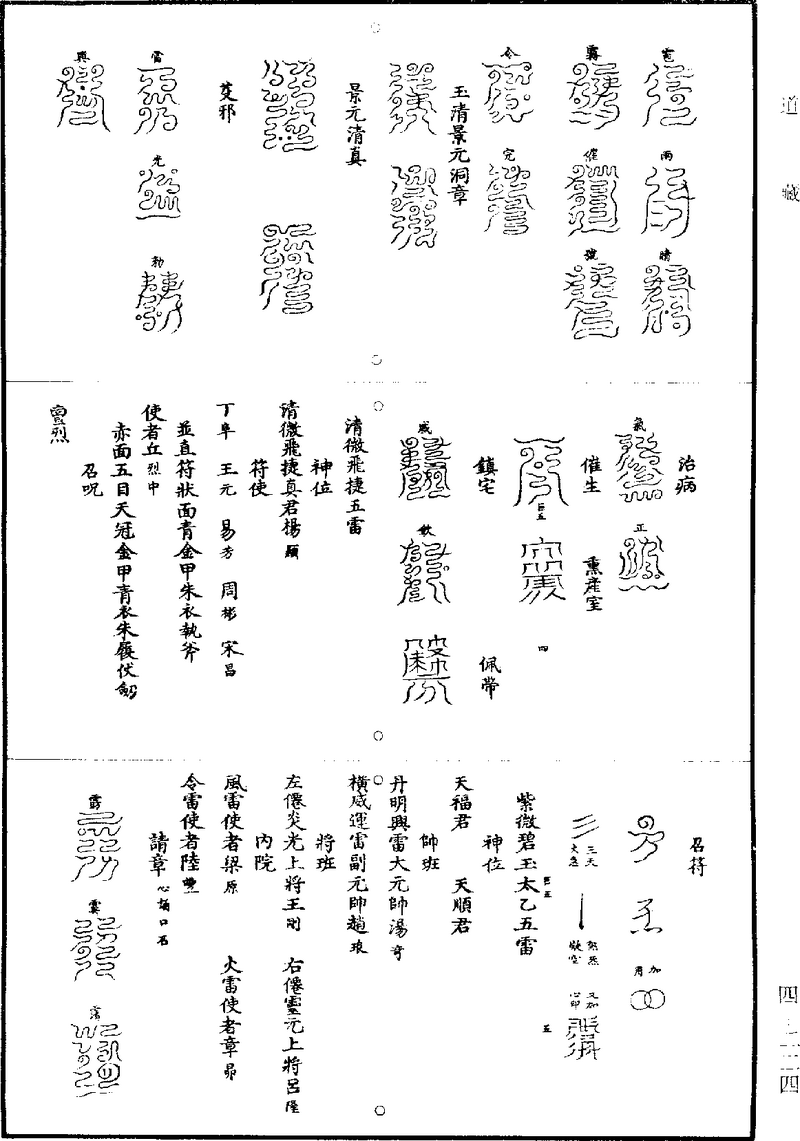 道藏
雹
雨
晴
霧
催
號
令
完
玉清景元洞章
景元清真
芟邪
雷
光
勑
興
治病
氣
正
催生
熏産室
巨五
四
鎮宅
佩帶
威
欽
清微飛捷五雷
神位
清微飛捷真君楊顯
符使
丁阜 王元 易秀 周彬 宋昌
並直符狀面青金甲朱衣執斧
使者丘烈中
赤面五目天冠金甲青衣朱履伏劒
召呪
召符
加
用
三天
火急
又加
心印
紫微碧玉太乙五雷
巨五
五
神位
天福君 天順君
帥班
丹明興雷大元帥湯奇
橫威運雷副元帥趙琅
將班
左僊炎光上將王剛 右僊靈元上將呂隆
內院
風雷使者梁原 火雷使者章昴
令雷使者陸
請章
四—七三四